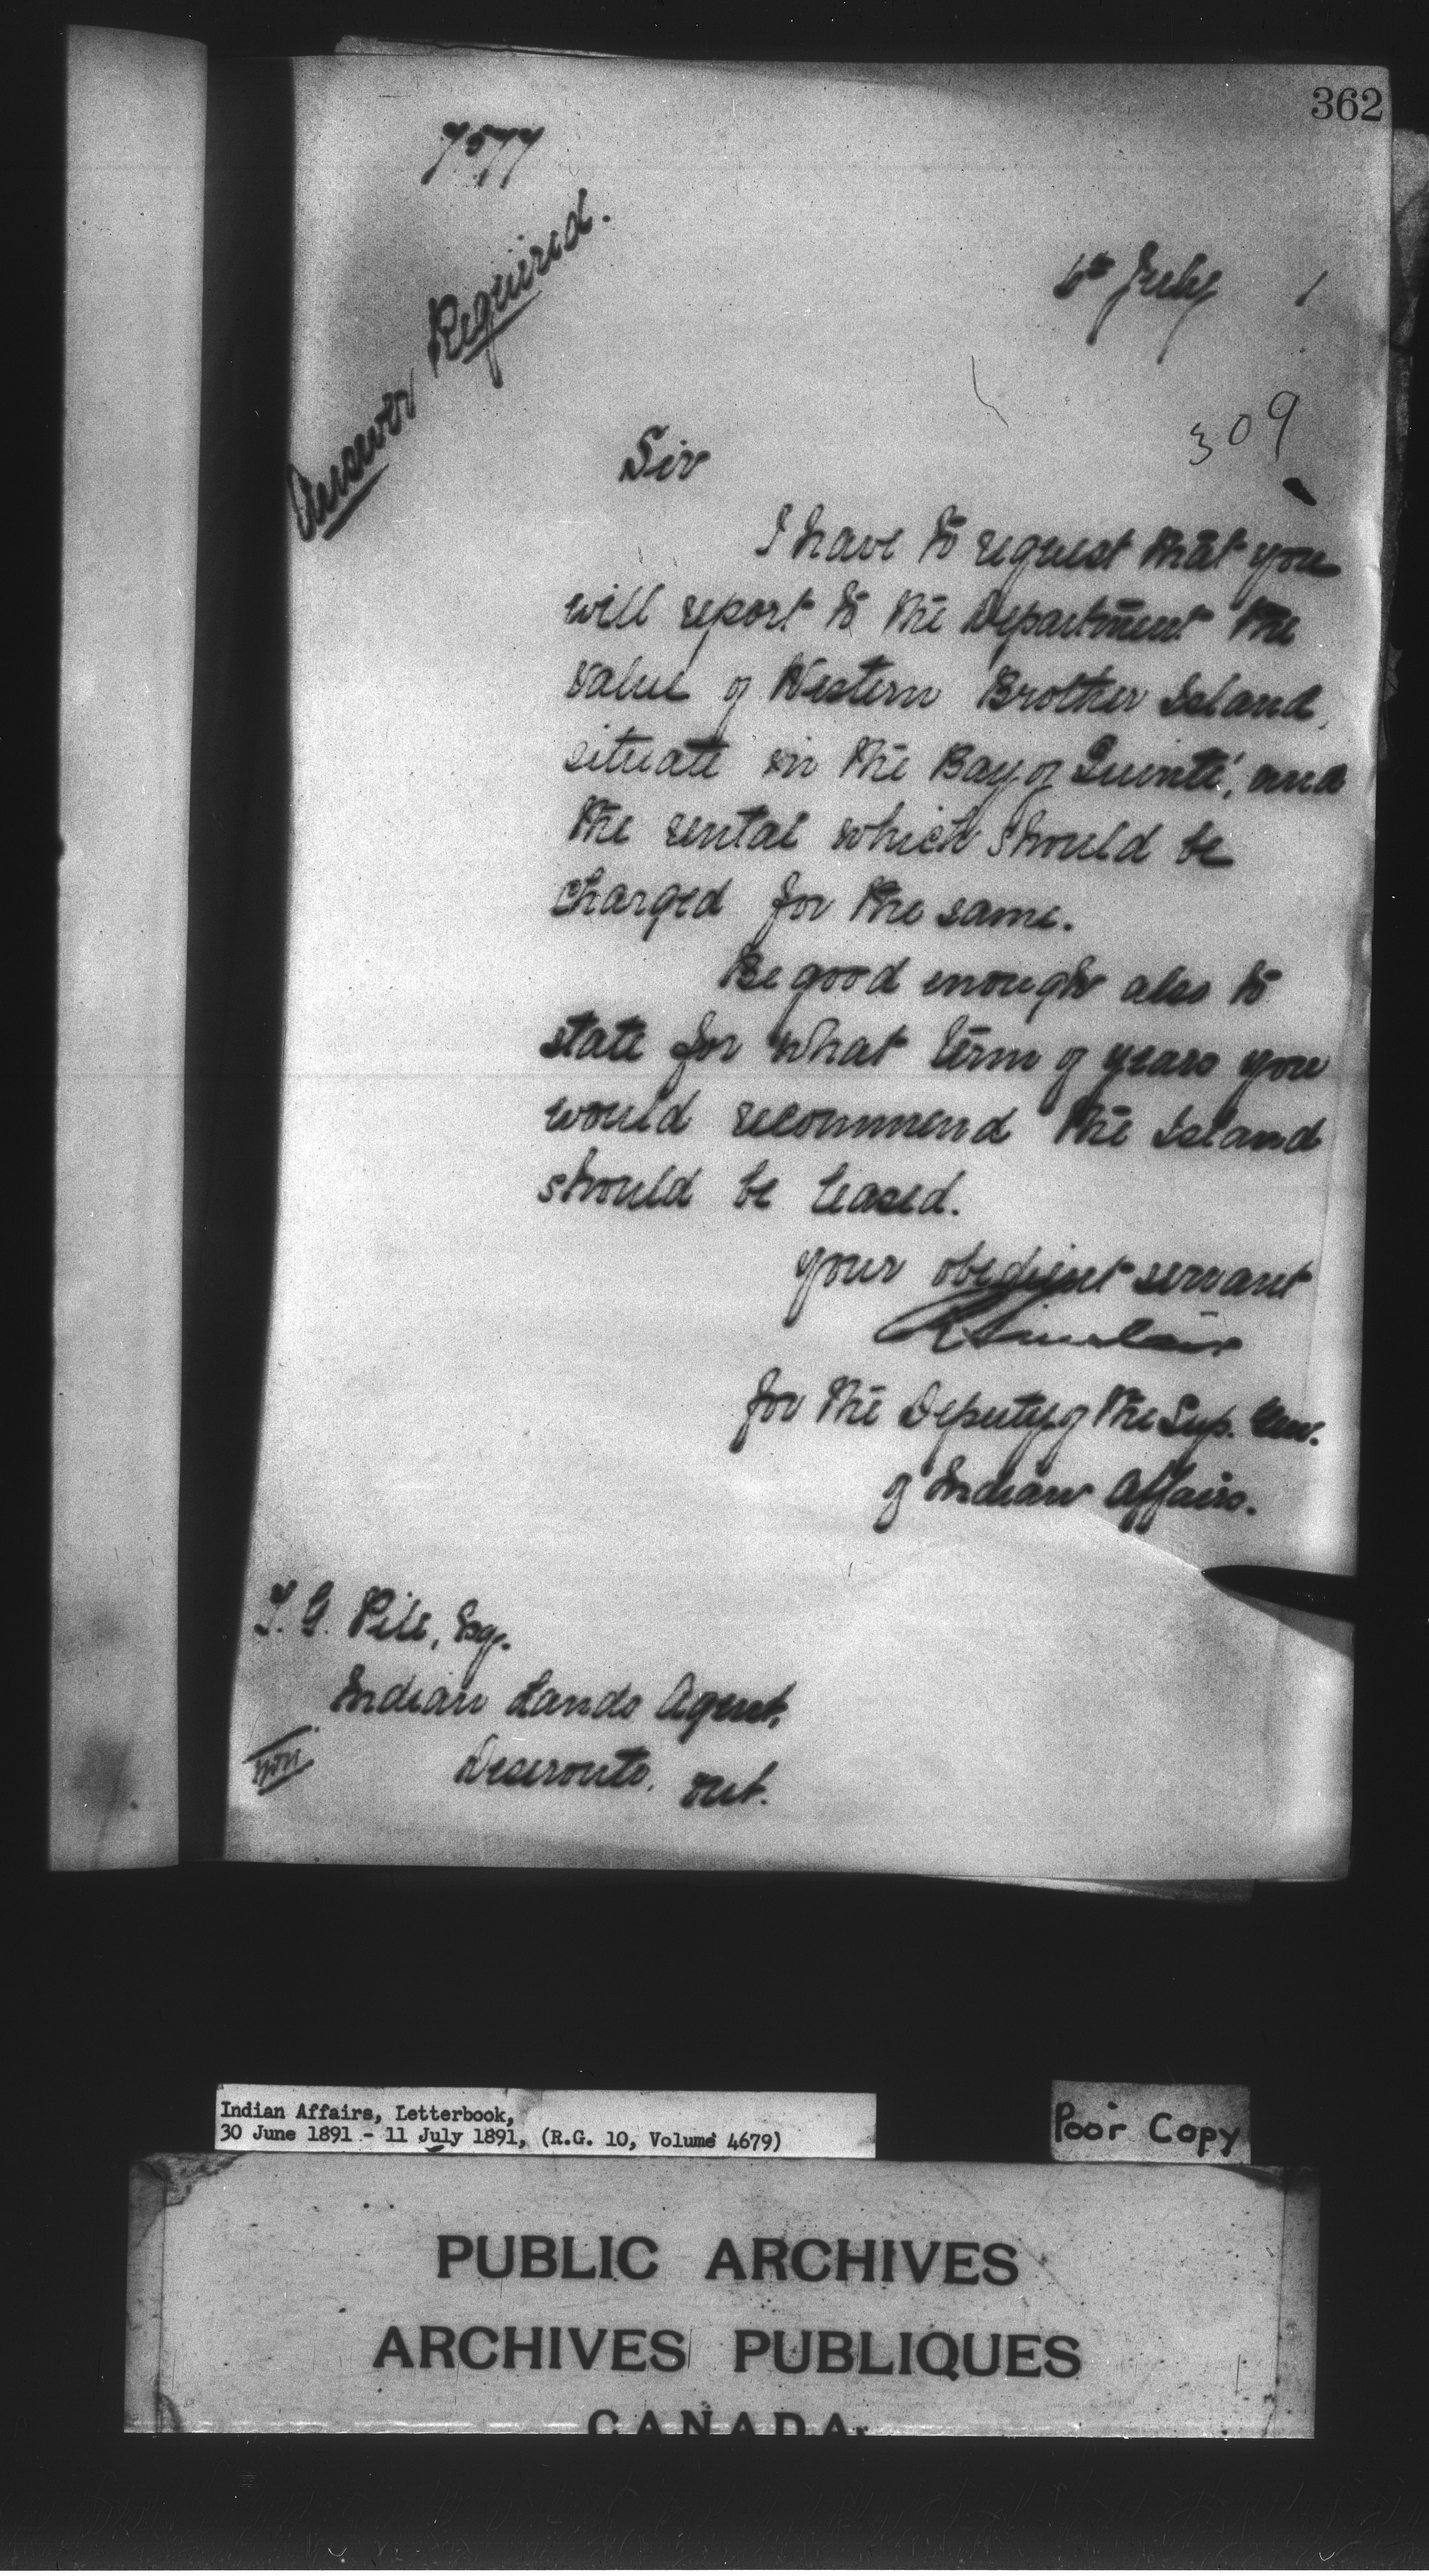 362
7577
Answer Required.
6th July 1
309
Sir
I have to request that you
will report to the Department the
value of Western Brother Island,
situate in the Bay of Quinté, and
the rental which should be
charged for the same.
Be good enough also to
state for what term of years you
would recommend the Island
should be leased.
your obedient servant
R Sinclair
for the Deputy of the Sup. Gen.
of Indian Affairs.
T. G. Pile, Esq.
Indian Lands Agent,
Deseronto, Ont.
Indian Affairs, Letterbook,
30 June 1891 - 11 July 1891, (R.G. 10, Volume 4679)
Poor Copy
PUBLIC ARCHIVES
ARCHIVES PUBLIQUES
CANADA